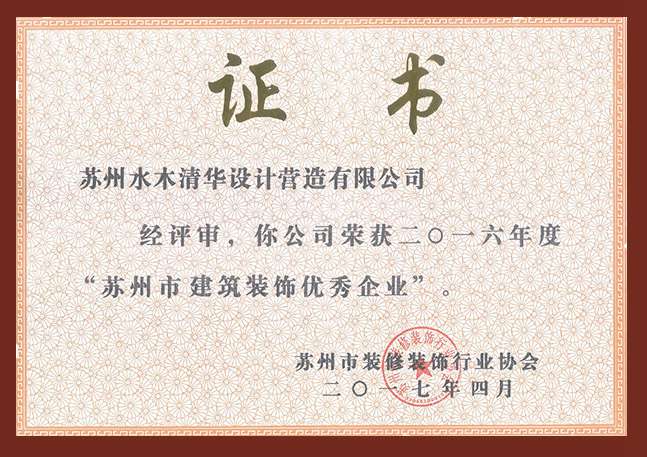 证书
苏州水木清华设计营造有限公司
经评审，你公司荣获二〇一六年度
“苏州市建筑装饰优秀企业”。
苏州市装修装饰行业协会
二〇一七年四月